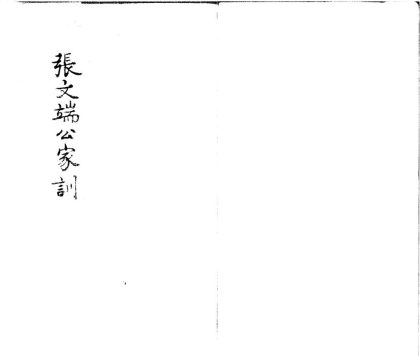 張文端公家訓